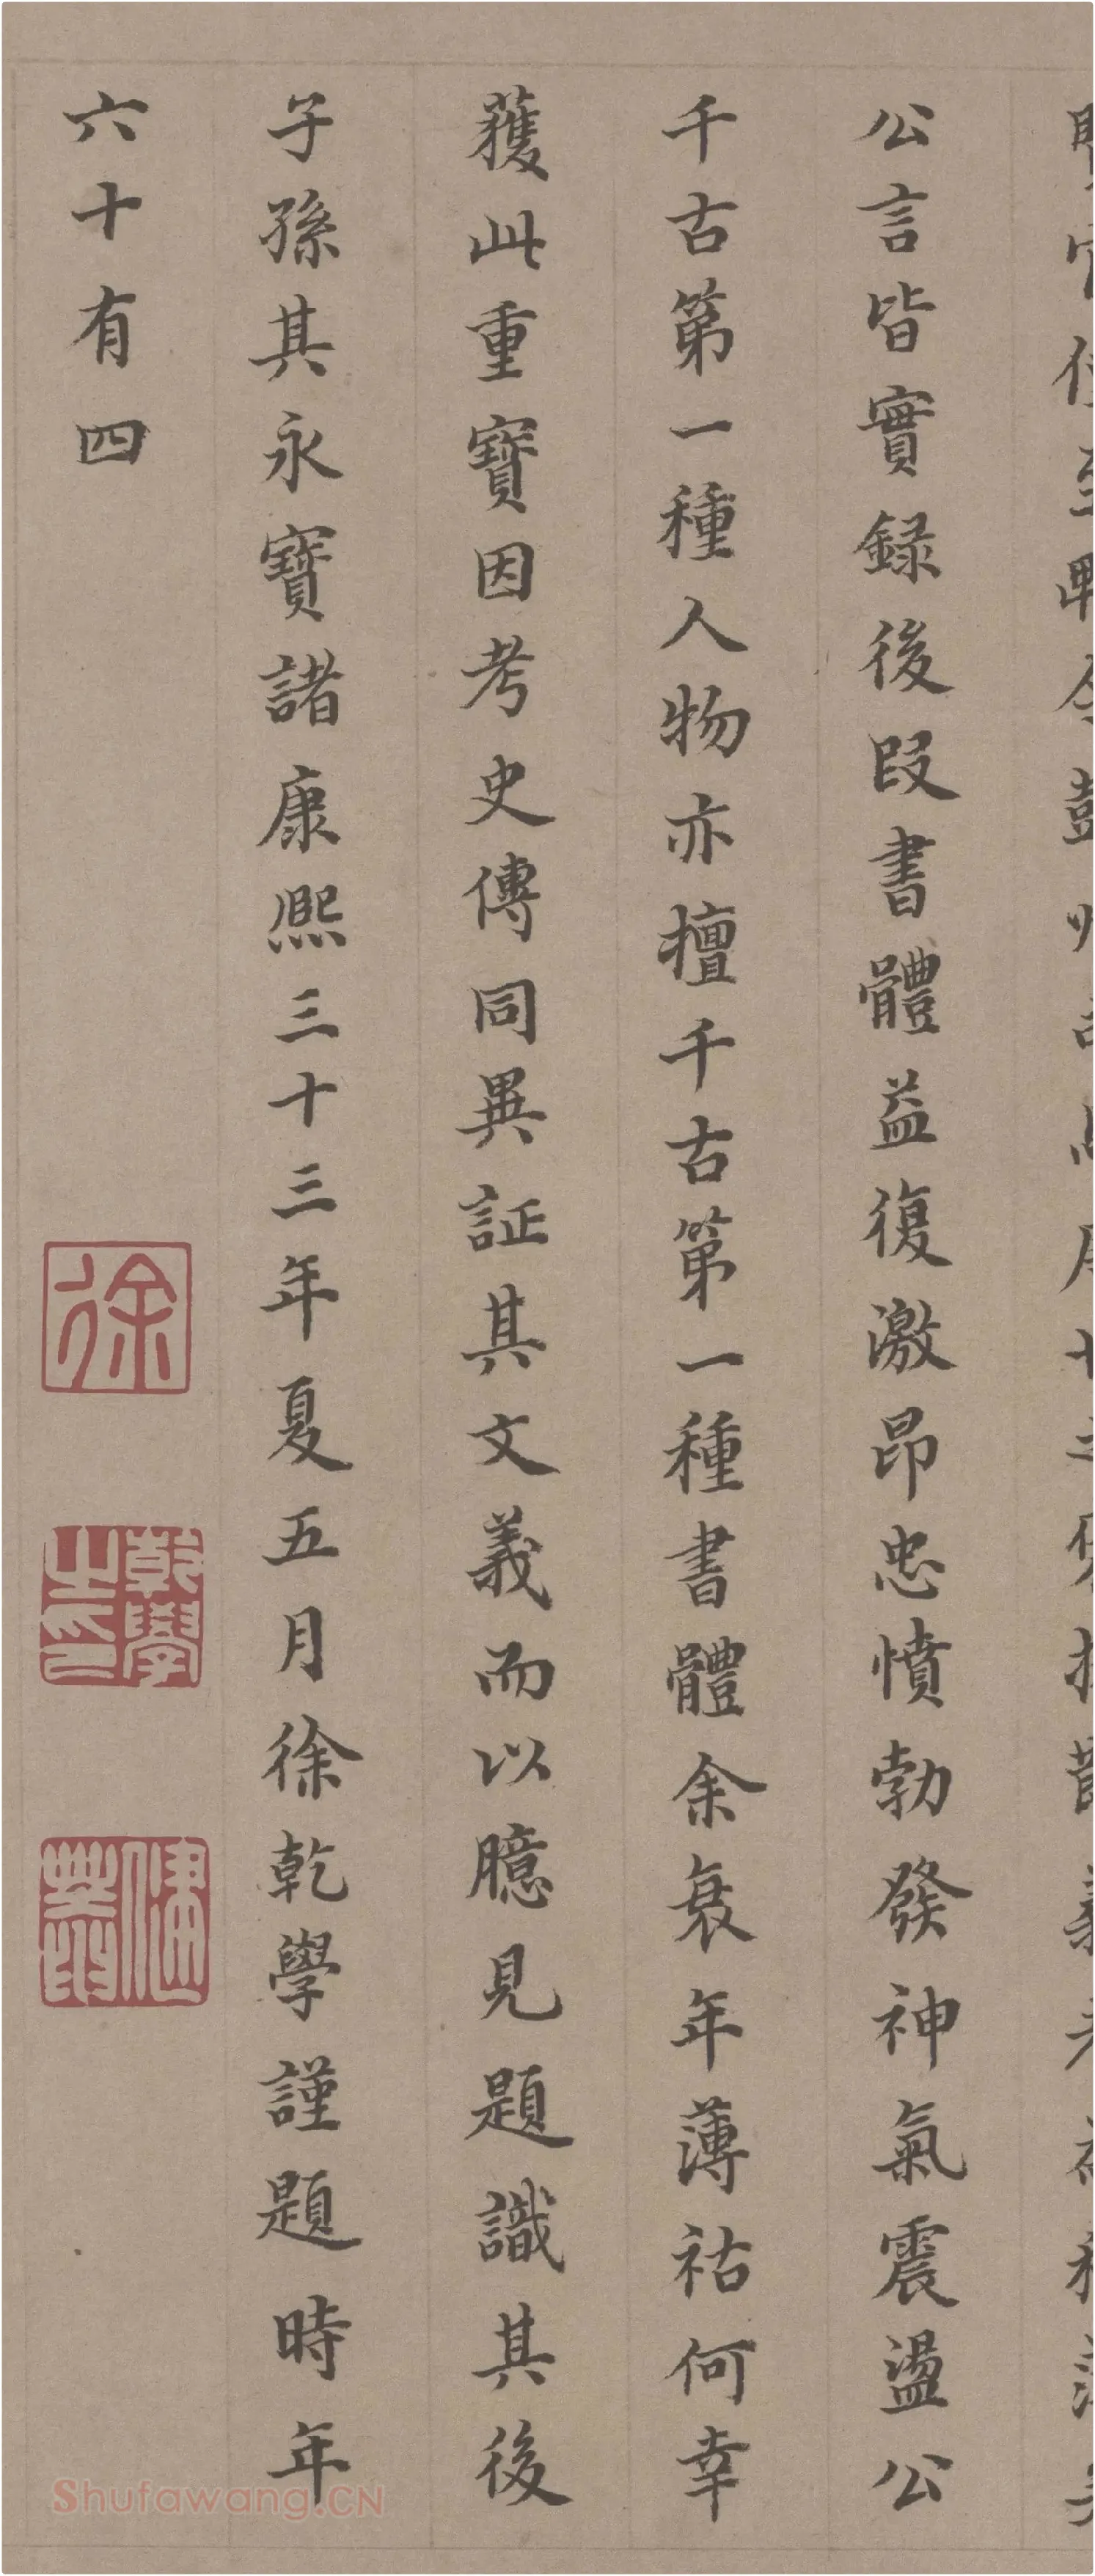 公言皆實録後段書體益復激昂忠憤勃發神氣震盪公
千古第一種人物亦擅千古第一種書體余衰年薄祜何幸
獲此重寶因考史傳同異証其文義而以臆見題識其後
子孫其永寶諸康熙三十三年夏五月徐乾學謹題時年
六十有四
徐
乾學之印
Shufawang.CN